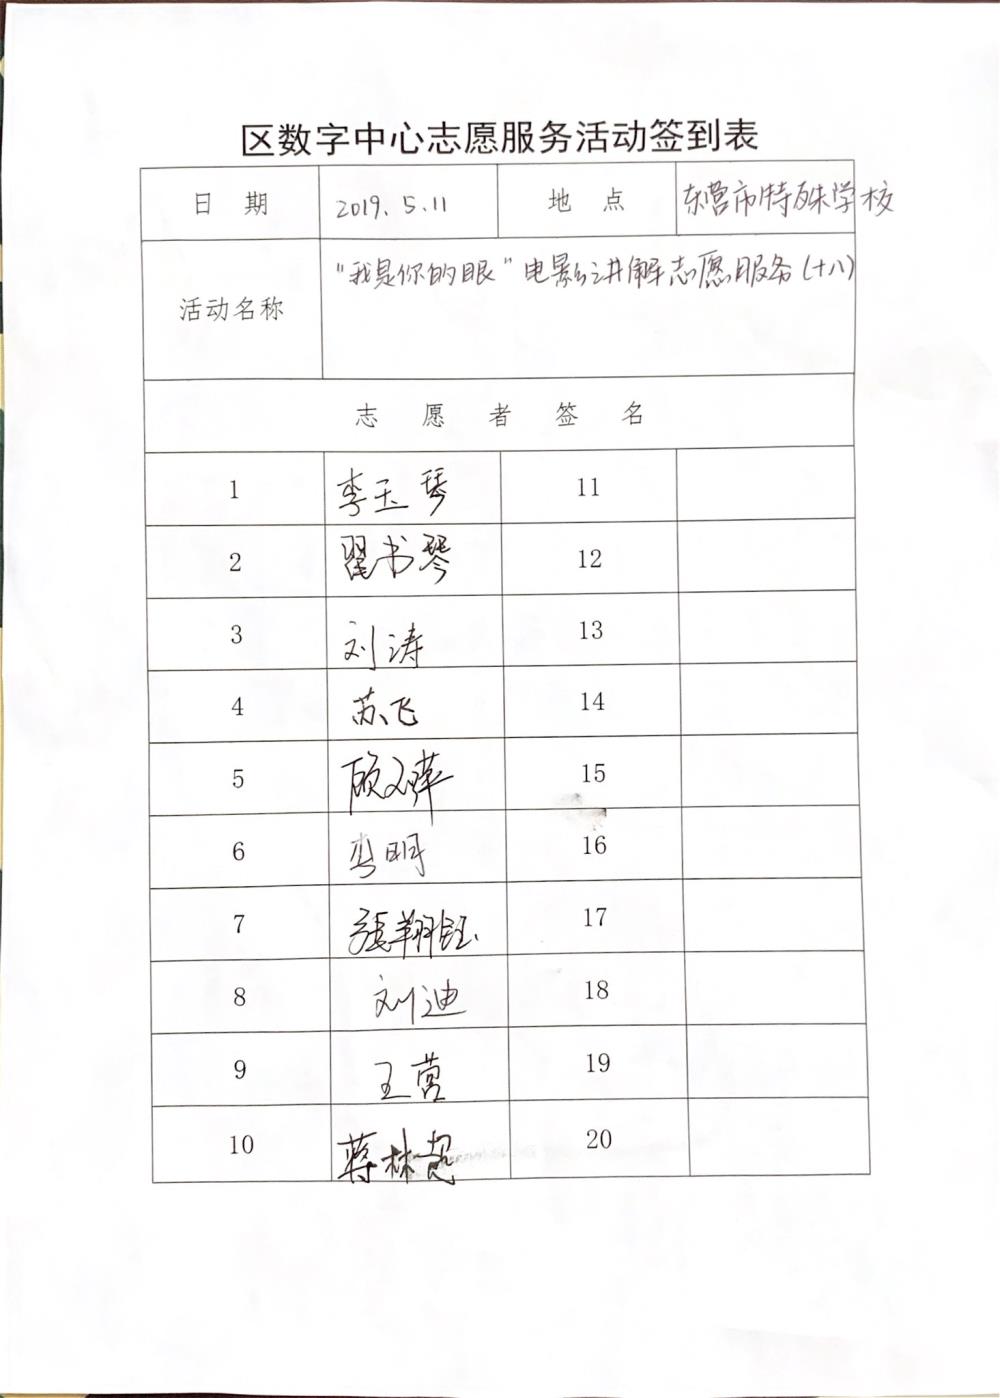 区数字中心志愿服务活动签到表
日 期 2019.5.11 地 点 东营市特殊学校
活动名称 "我是你的眼"电影讲解志愿服务(十八)
志 愿 者 签 名
1 李玉琴 11
2 翟书琴 12
3 刘涛 13
4 苏飞 14
5 顾文萍 15
6 李明 16
7 张翔钰 17
8 刘迪 18
9 王营 19
10 蒋林超 20